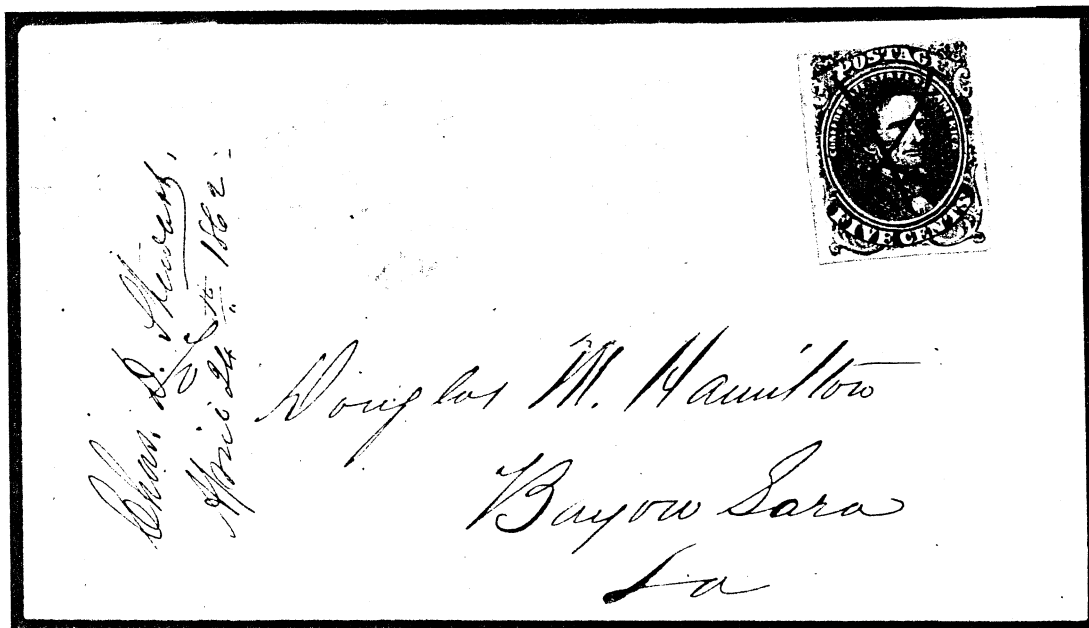 POSTAGE
CONFEDERATE STATES OF AMERICA
FIVE CENTS
Chas. D. Stewart,
April 24th 1862.
Douglas M. Hamilton
Bayou Sara
La